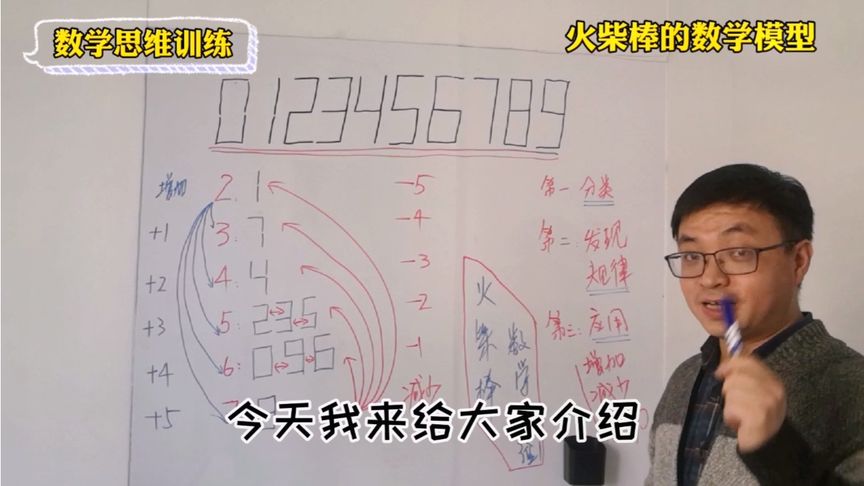 数学思维训练
火柴棒的数学模型
0123456789
增加 2. 1 -5
+1 3: 7 -4
+2 4: 4 -3
+3 5: 235 -2
+4 6: 096 -1
+5 减少
第一 分类
第二: 发现
规律
第三: 应用
增加
减少
火柴棒
数学
今天我来给大家介绍